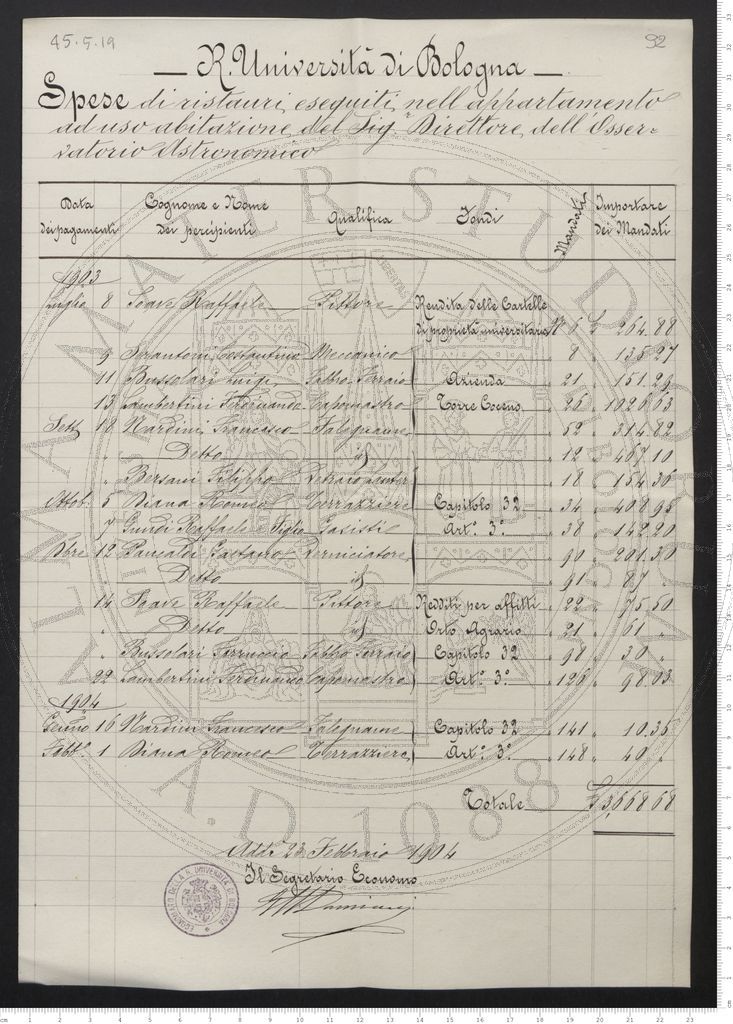 45.5.19
92
— R. Università di Bologna —
Spese di ristauri eseguiti nell'appartamento
ad uso abitazione del Sig.r Direttore dell'Osser-
vatorio Astronomico
Data dei pagamenti | Cognome e Nome dei percipienti | Qualifica | Fondi | Mandati | Importare dei Mandati
1903
Luglio 8 Soavi Raffaele Pittore Rendita delle Cartelle
di proprietà universitaria N. 6 £ 264.88
9 Costantino Meccanico 8 " 135.27
11 Bussolari Luigi Fabbro Ferraio Azienda 21 " 151.29
13 Lambertini Ferdinando Capomastro Torre 26 " 1026.63
Sett. 18 Nardini Francesco Falegname 52 " 314.82
" Detto id 12 " 467.10
" Bersani Filippo 18 " 154.36
Ottob. 5 Diana Romeo Terrazziere Capitolo 32 34 " 408.95
7 Guidi Raffaele Figlio Gasisti Art.o 3.o 38 " 142.20
Xbre 12 Gaetano Verniciatore 90 " 201.30
" Detto id 91 " 87 "
14 Soavi Raffaele Pittore Redditi per affitti 22 " 75.50
" Detto id Orto Agrario 21 " 61 "
" Bussolari Ferruccio Fabbro Ferraio Capitolo 32 98 " 30 "
22 Lambertini Ferdinando Capomastro Art.o 3.o 126 " 98.03
1904
16 Nardini Francesco Falegname Capitolo 32 141 " 10.35
Febb.o 1 Diana Romeo Terrazziere Art.o 3.o 148 " 40 "
Totale £ 3,668 68
Addì 23 Febbraio 1904
Il Segretario Economo
ECONOMATO DELLA R. UNIVERSITÀ DI BOLOGNA
ALMA MATER STUDIORUM
A.D. 1088